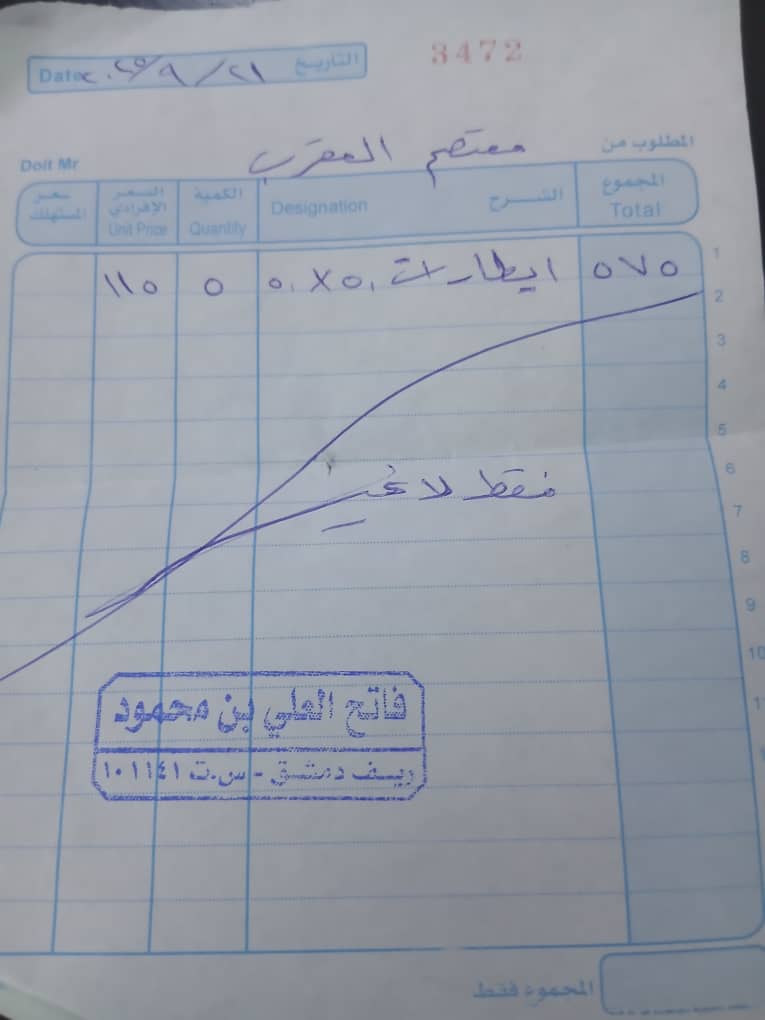 3472
Date ٢٠٢٥/٩/٢١ التاريخ
المطلوب من معتصم المقرب Doit Mr
المجموع الشرح الكمية السعر الإفرادي سعر المستهلك
Total Designation Quantity Unit Price
1 ٥٧٥ ايطارات ٥٠×٥٠ ٥ ١١٥
2
3
4
5
6 فقط لا غير
7
8
9
10
فاتح العلي بن محمود
ريف دمشق - س.ت ١٠١١٤١
المجموع فقط